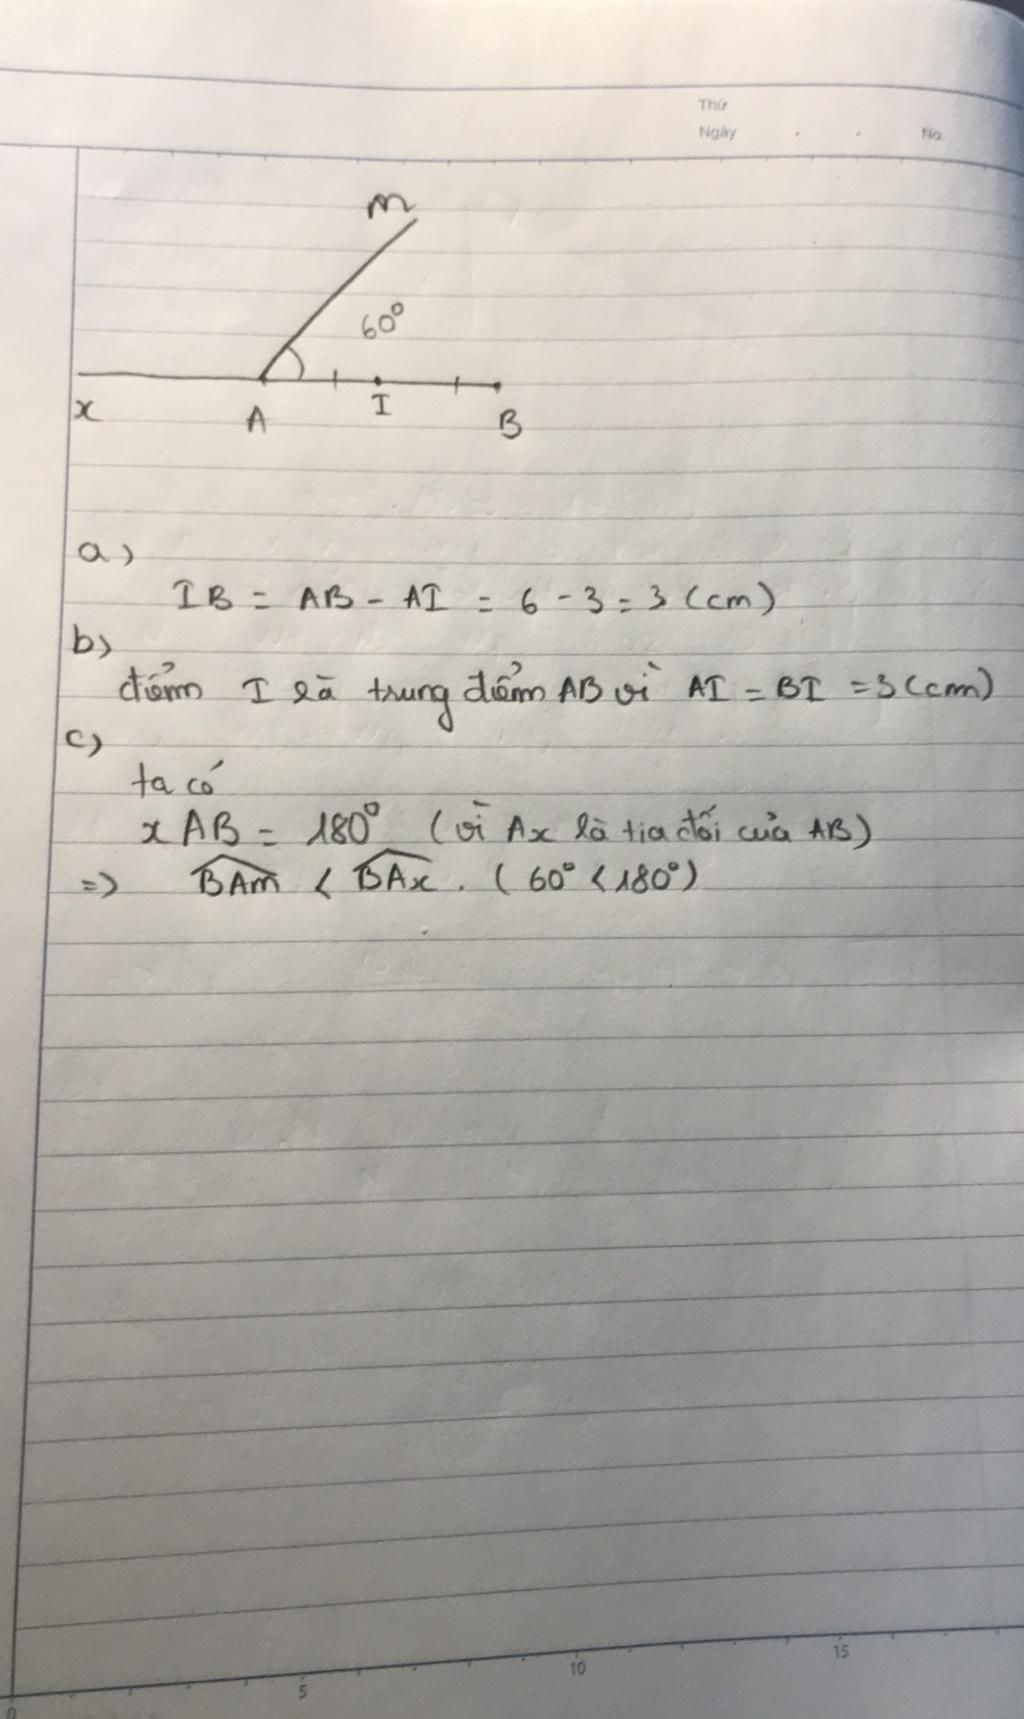 Thứ
Ngày . . No.
m
60°
x A I B
a)
IB = AB - AI = 6 - 3 = 3 (cm)
b)
điểm I là trung điểm AB vì AI = BI = 3 (cm)
c)
ta có
xAB = 180° (vì Ax là tia đối của AB)
=> BAm < BAx . (60° < 180°)
0 5 10 15